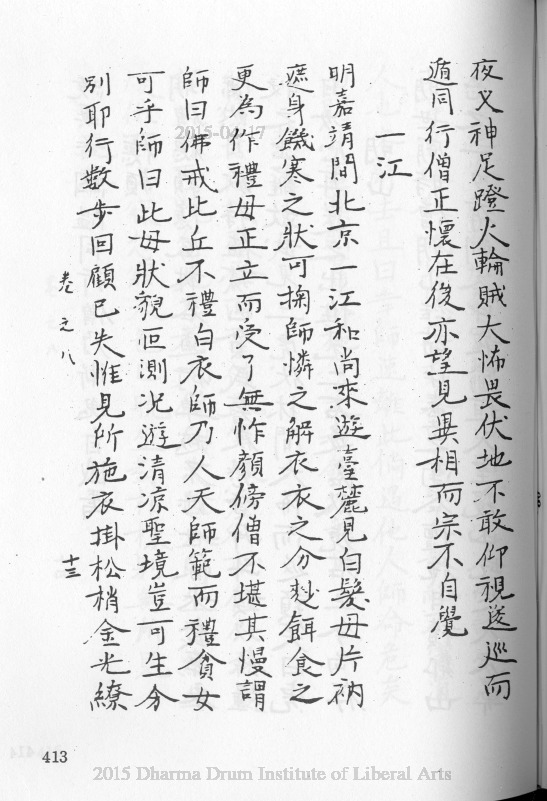 夜叉神足蹬火輪賊大怖畏伏地不敢仰視逡巡而
遁同行僧正懷在後亦望見異相而宗不自覺
一江
明嘉靖間北京一江和尚來遊臺麓見白髮母片衲
遮身饑寒之狀可掬師憐之解衣衣之分麨餌食之
更為作禮母正立而受了無怍顏傍僧不堪其慢謂
師曰佛戒比丘不禮白衣師乃人天師範而禮貧女
可乎師曰此母狀貌叵測况遊清凉聖境豈可生分
別耶行數步回顧已失惟見所施衣掛松梢金光繚
卷之八
十三
413
2015-04-17
2015 Dharma Drum Institute of Liberal Arts